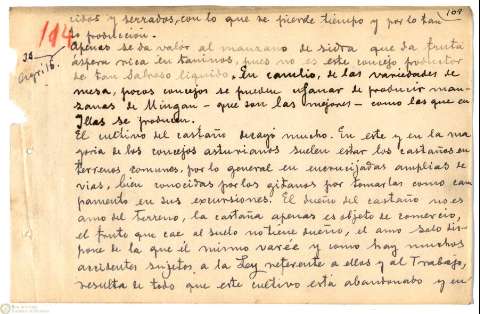 109
cidos y cerrados, con lo que se pierde tiempo y por lo tan
114
to producción.
Apenas se da valor al manzano de sidra que da fruta
áspera rica en taninos, pues no es este concejo productor
de tan sabroso líquido. En cambio, de las variedades de
mesa, pocos concejos se pueden ufanar de producir man-
zanas de Mingan - que son las mejores - como las que en
Illas se producen.
El cultivo del castaño decayó mucho. En este y en la ma
yoria de los concejos asturianos suelen estar los castaños en
terrenos comunes, por lo general en encrucijadas amplias de
vias, bien conocidas por los gitanos por tomarlas como cam
pamento en sus excursiones. El dueño del castaño no es
amo del terreno, la castaña apenas es objeto de comercio,
el fruto que cae al suelo no tiene dueño, el amo solo dis-
pone de la que él mismo varée y como hay muchos
accidentes sujetos a la Ley referente a ellos y al Trabajo,
resulta de todo que este cultivo está abandonado y en